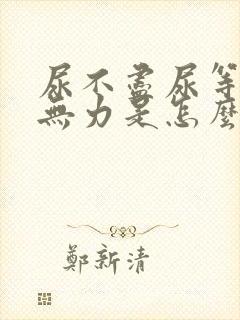 尿不盡尿等
無力是怎麼
鄭新清